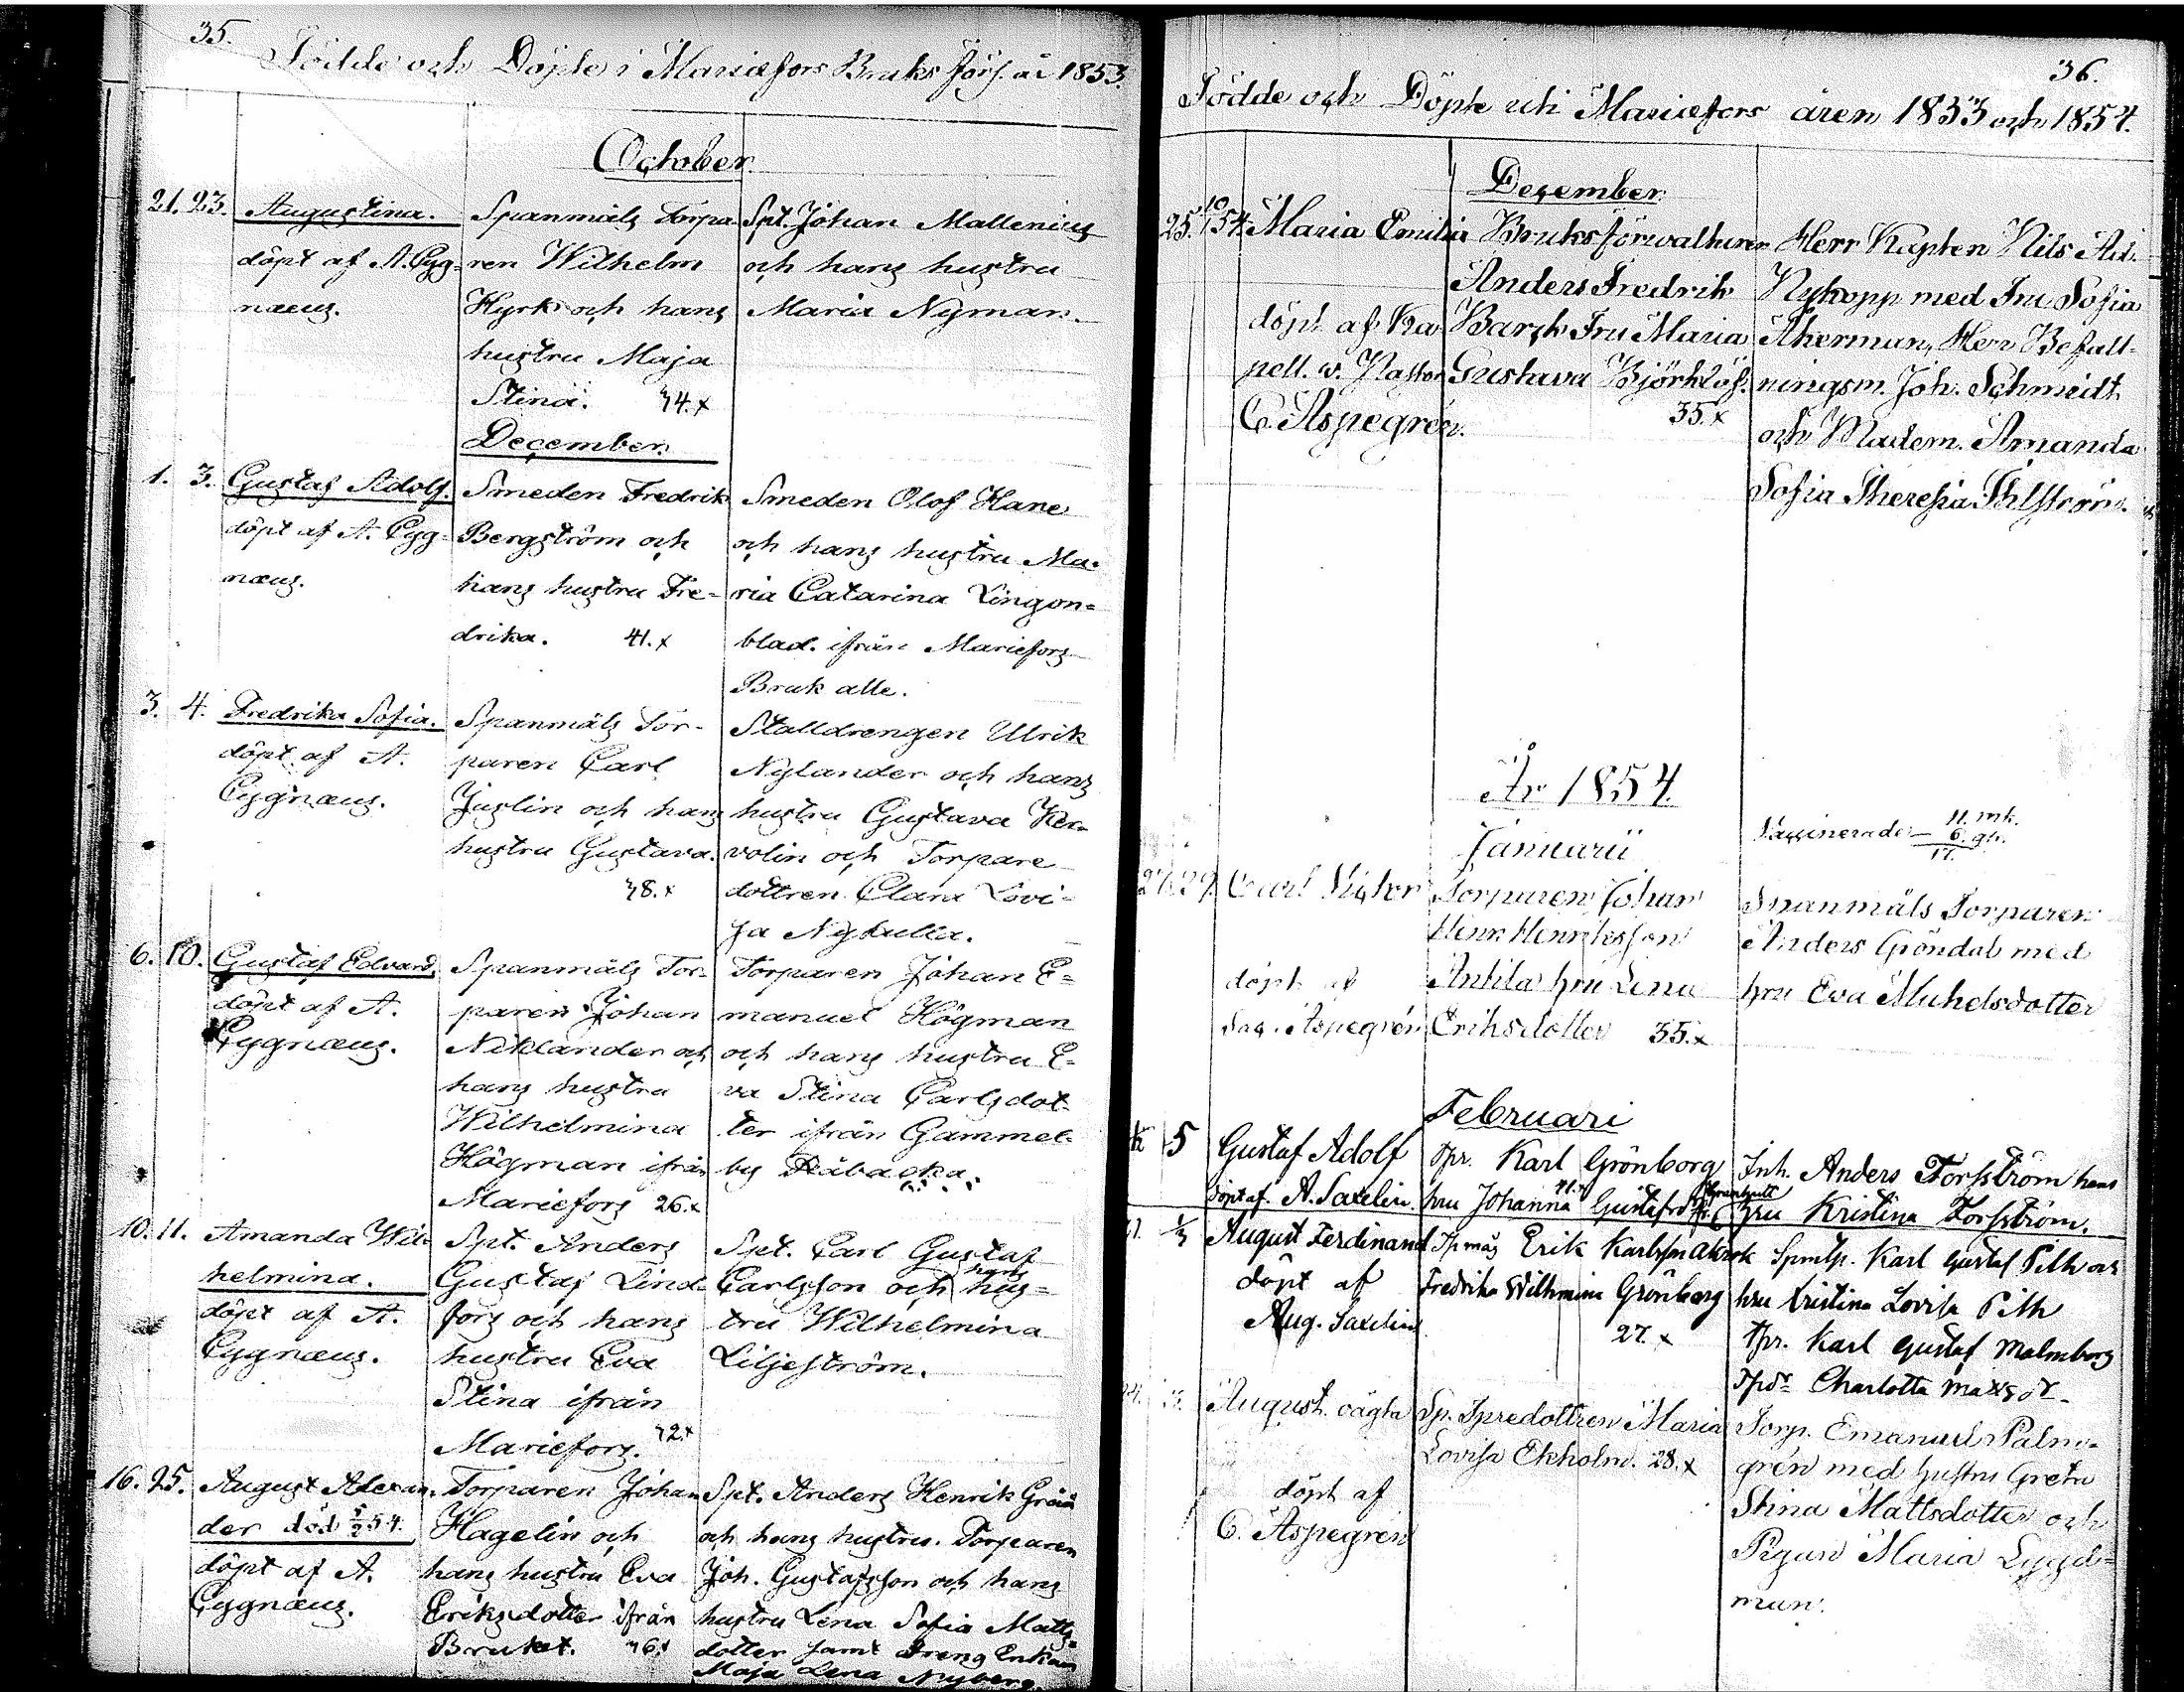 35.
Födde och Döpte i Mariæfors Bruks förs. år 1853.
October.
21. 23. Augustina.
döpt af A. Cyg-
næus.
Spanmåls Torpa-
ren Wilhelm
Hyrk och hans
hustru Maja
Stina. 44.x
Spt. Johan Mallenius
och hans hustru
Maria Nyman.
December.
1. 3. Gustaf Adolf.
döpt af A. Cyg-
næus.
Smeden Fredrik
Bergström och
hans hustru Fre-
drika. 41.x
Smeden Olof Hane
och hans hustru Ma-
ria Catarina Lingon-
blad. ifrån Mariefors
Bruk alle.
3. 4. Fredrika Sofia.
döpt af A.
Cygnæus.
Spanmåls Tor-
paren Carl
Juslin och hans
hustru Gustava.
48.x
Stalldrengen Ulrik
Nylander och hans
hustru Gustava Ker-
volin och Torpare
dottren Clara Lovi-
sa Nykulla.
6. 10. Gustaf Edvard.
döpt af A.
Cygnæus.
Spanmåls Tor-
paren Johan
Neklander och
hans hustru
Wilhelmina
Högman ifrån
Mariefors 26.x
Torparen Johan E-
manuel Högman
och hans hustru E-
va Stina Carlsdot-
ter ifrån Gammel-
by Råbacka.
10. 11. Amanda Wil-
helmina.
döpt af A.
Cygnæus.
Spt. Anders
Gustaf Lind-
fors och hans
hustru Eva
Stina ifrån
Mariefors. 42.x
Spt. Carl Gustaf
Carlsson och hans hus-
tru Wilhelmina
Liljeström.
16. 25. August Alexan-
der död 5/2 54.
döpt af A.
Cygnæus.
Torparen Johan
Hagelin och
hans hustru Eva
Eriksdotter ifrån
Bruket. 46.x
Spt. Anders Henrik
och hans hustru. Torparen
Joh. Gustafsson och hans
hustru Lena Sofia Matts-
dotter samt Dreng Enkan
Maja Lena Nyberg.
36.
Födde och Döpte uti Mariæfors åren 1853 och 1854.
December.
25. 10/1 54. Maria Emilia
döpt af Ka-
pell. v. Pastor
C. Aspegrén.
Bruksförvaltaren
Anders Fredrik
Barck Fru Maria
Gustava Björklöf.
35.x
Herr Kapten Nils Ad.
Nykopp med Fru Sofia
Åkerman, Herr Befall-
ningsm. Joh. Schmidt
och Madem. Amanda
Sofia Theresia
År 1854.
Januarii
Vaccinerade 11. mk.
6. qk.
17.
27. 29. Carl Victor
döpt af
Sac. Aspegrén
Torparen Johan
Henr. Henriksson
Anttila hru Lena
Eriksdotter 35.x
Spanmåls Torparen
Anders Gröndal med
hru Eva Michelsdotter
Februari
5 Gustaf Adolf
döpt af. A. Saxelin.
Tpr. Karl Grönborg
hru Johanna Gustafsdr
41.x
Inh. Anders Forsström hans
hru Kristina Forsström.
August Ferdinand
döpt af
Aug. Saxelin
Erik Karlsson
Fredrika Wilhmina Grönberg
27.x
Spmtp. Karl Gustaf Pilh och
hru Kristina Lovisa Pilh
Tpr. Karl Gustaf Malmborg
Charlotta
August. oägta
döpt af
C. Aspegrén
Sp. Tpredottren Maria
Lovisa Ekholm. 28.x
Torp. Emanuel Palm-
grén med hustru Greta
Stina Mattsdotter och
Pigan Maria Lygd-
man.